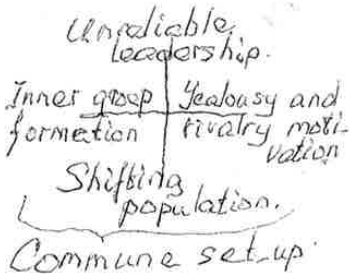 Unreliable
leadership.
Inner group
formation
Jealousy and
rivalry moti-
vation
Shifting
population.
Commune set-up.